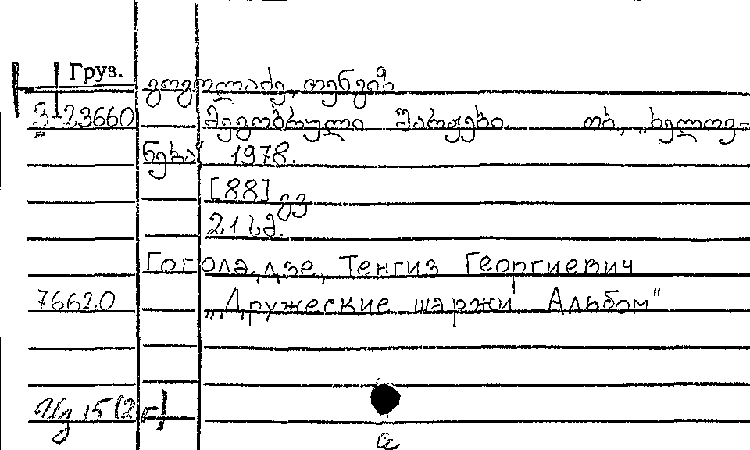 Груз.
გოგოლაძე, თენგიზ
3-23660 მეგობრული შარჟები. თბ., „ხელოვ-
ნება“ 1978.
[88] გვ
21 სმ.
Гоголадзе, Тенгиз Георгиевич
76620 „Дружеские шаржи Альбом“